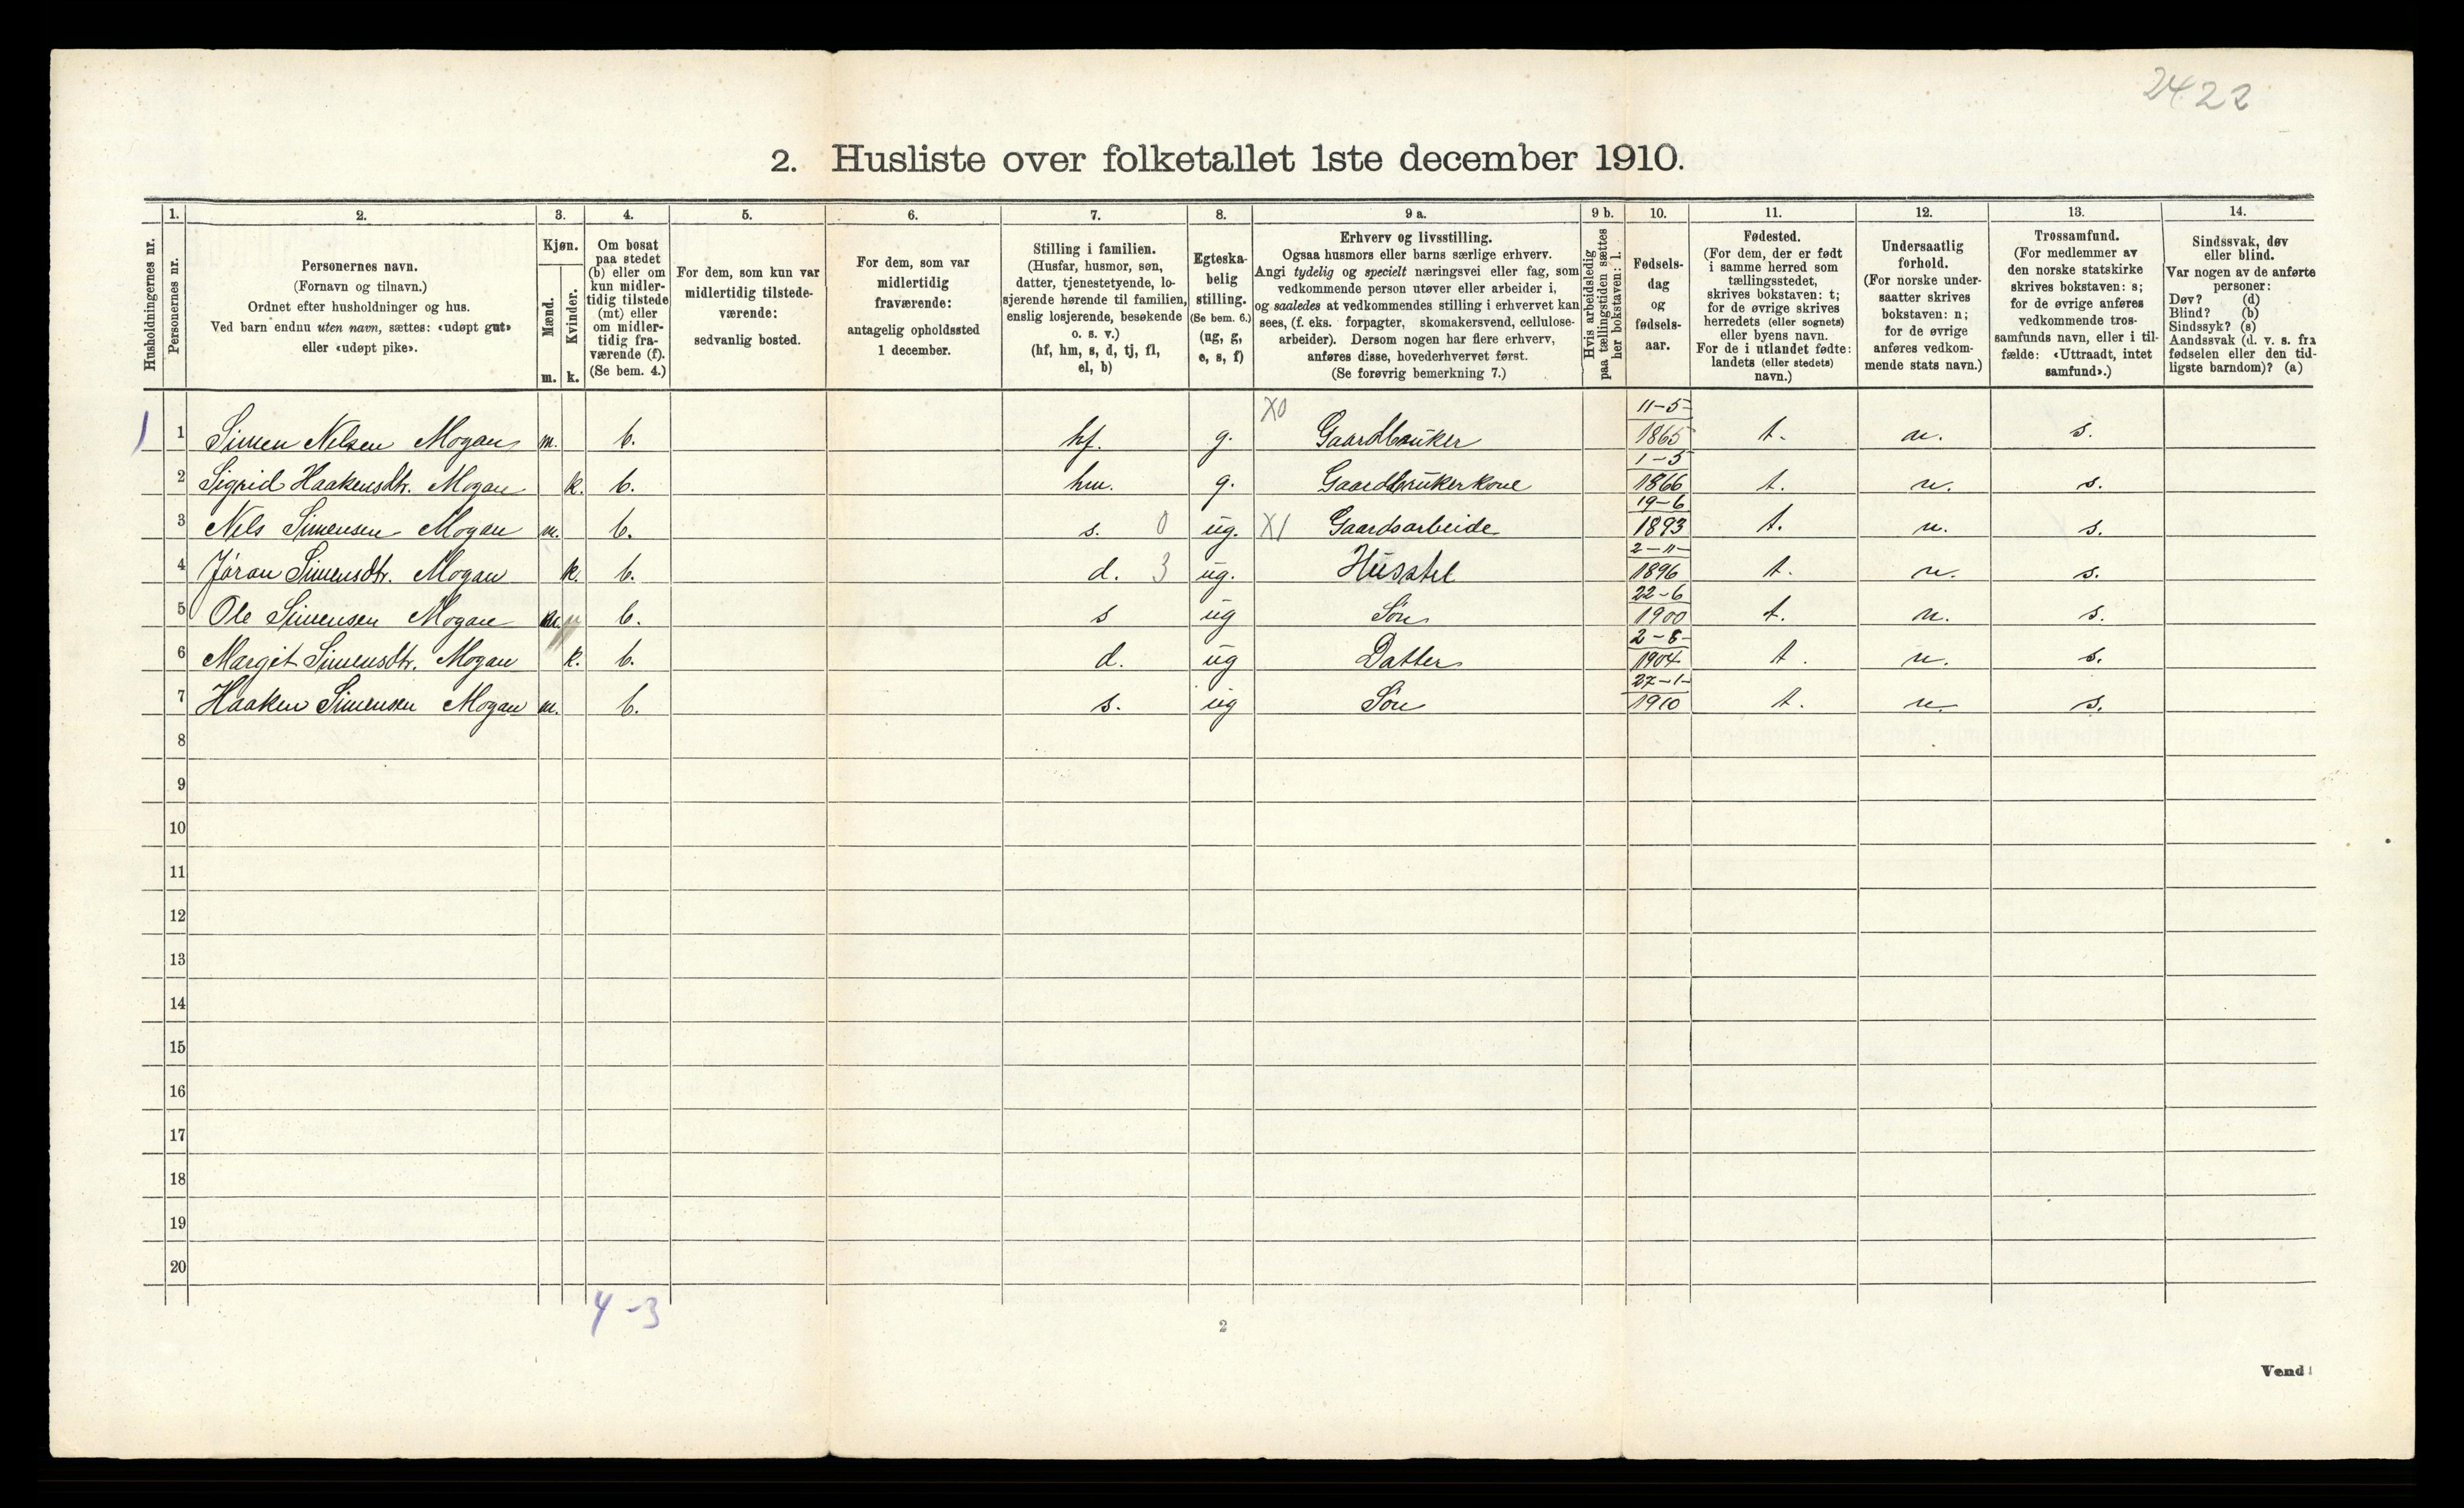 2422
2. Husliste over folketallet 1ste december 1910.
Husholdningernes nr.
1.
Personernes nr.
2.
Personernes navn.
(Fornavn og tilnavn.)
Ordnet efter husholdninger og hus.
Ved barn endnu uten navn, sættes: «udøpt gut»
eller «udøpt pike».
3.
Kjøn.
Mænd.
Kvinder.
m. k.
4.
Om bosat
paa stedet
(b) eller om
kun midler-
tidig tilstede
(mt) eller
om midler-
tidig fra-
værende (f).
(Se bem. 4.)
5.
For dem, som kun var
midlertidig tilstede-
værende:
sedvanlig bosted.
6.
For dem, som var
midlertidig
fraværende:
antagelig opholdssted
1 december.
7.
Stilling i familien.
(Husfar, husmor, søn,
datter, tjenestetyende, lo-
sjerende hørende til familien,
enslig losjerende, besøkende
o. s. v.)
(hf, hm, s, d, tj, fl,
el, b)
8.
Egteska-
belig
stilling.
(Se bem. 6.)
(ug, g,
e, s, f)
9 a.
Erhverv og livsstilling.
Ogsaa husmors eller barns særlige erhverv.
Angi tydelig og specielt næringsvei eller fag, som
vedkommende person utøver eller arbeider i,
og saaledes at vedkommendes stilling i erhvervet kan
sees, (f. eks. forpagter, skomakersvend, cellulose-
arbeider). Dersom nogen har flere erhverv,
anføres disse, hovederhvervet først.
(Se forøvrig bemerkning 7.)
9 b.
Hvis arbeidsledig
paa tællingstiden sættes
her bokstaven: l.
10.
Fødsels-
dag
og
fødsels-
aar.
11.
Fødested.
(For dem, der er født
i samme herred som
tællingsstedet,
skrives bokstaven: t;
for de øvrige skrives
herredets (eller sognets)
eller byens navn.
For de i utlandet fødte:
landets (eller stedets)
navn.)
12.
Undersaatlig
forhold.
(For norske under-
saatter skrives
bokstaven: n;
for de øvrige
anføres vedkom-
mende stats navn.)
13.
Trossamfund.
(For medlemmer av
den norske statskirke
skrives bokstaven: s;
for de øvrige anføres
vedkommende tros-
samfunds navn, eller i til-
fælde: «Uttraadt, intet
samfund».)
14.
Sindssvak, døv
eller blind.
Var nogen av de anførte
personer:
Døv? (d)
Blind? (b)
Sindssyk? (s)
Aandssvak (d. v. s. fra
fødselen eller den tid-
ligste barndom)? (a)
1 1 Simen Nelsen Mogan m. b. hf. g. X0 Gaardbruker 11-5- 1865 t. n. s.
2 Sigrid Haakensdtr. Mogan k. b. hm. g. Gaardbrukerkone 1-5 1866 t. n. s.
3 Nels Simensen Mogan m. b. s. 0 ug. X1 Gaardsarbeide 19-6 1893 t. n. s.
4 Jøran Simensdtr. Mogan k. b. d. 3 ug. Husstel 2-11- 1896 t. n. s.
5 Ole Simensen Mogan m. b. s ug Søn 22-6 1900 t. n. s.
6 Margit Simensdtr. Mogan k. b. d. ug Datter 2-8- 1904 t. n. s.
7 Haaken Simensen Mogan m. b. s. ug Søn 27-1- 1910 t. n. s.
8
9
10
11
12
13
14
15
16
17
18
19
20
4-3
2
Vend!